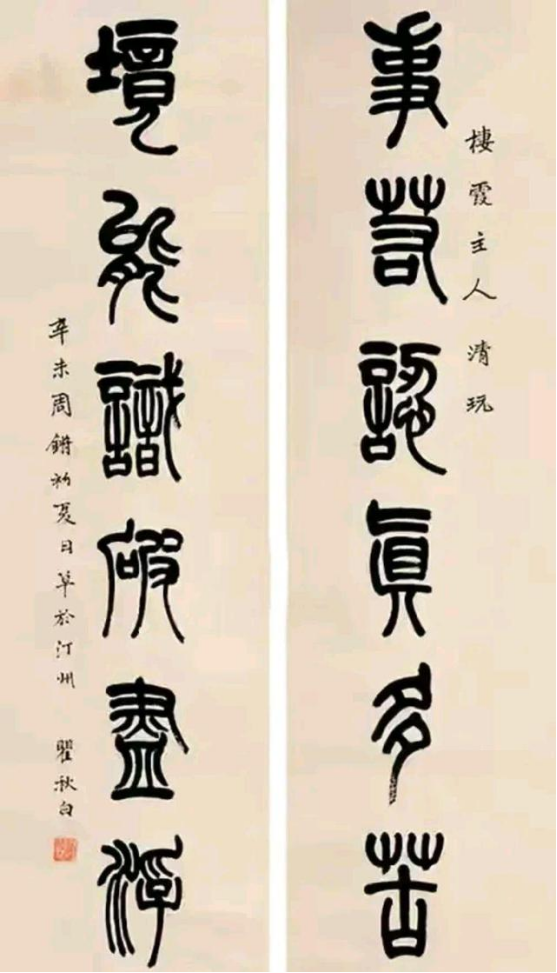 棲霞主人清玩
事若認眞多苦
境能識破盡浮
辛未周鏘初夏日草於汀州 瞿秋白